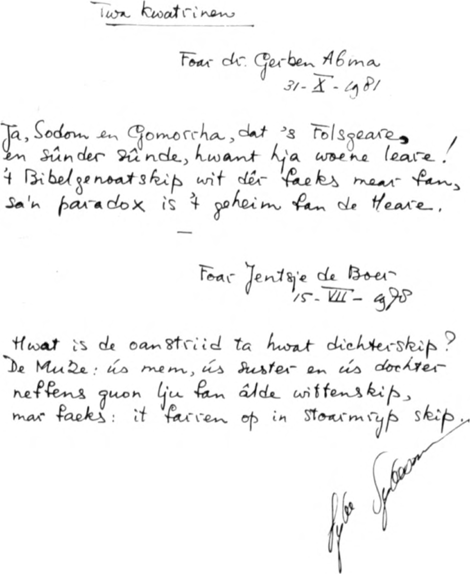 Twa kwatrinen
Foar dr. Gerben Abma
31-X-1981
Ja, Sodom en Gomorrha, dat 's Folsgeare,
en sûnder sûnde, hwant hja woene leare!
't Bibelgenoatskip wit dêr faeks mear fan,
sa'n paradox is 't geheim fan de Heare.
—
Foar Jentsje de Boer
15-VII-1978
Hwat is de oanstriid ta hwat dichterskip?
De Muze: ús mem, ús suster en ús dochter
neffens guon lju fan âlde wittenskip,
mar faeks: it farren op in stoarmryp skip.